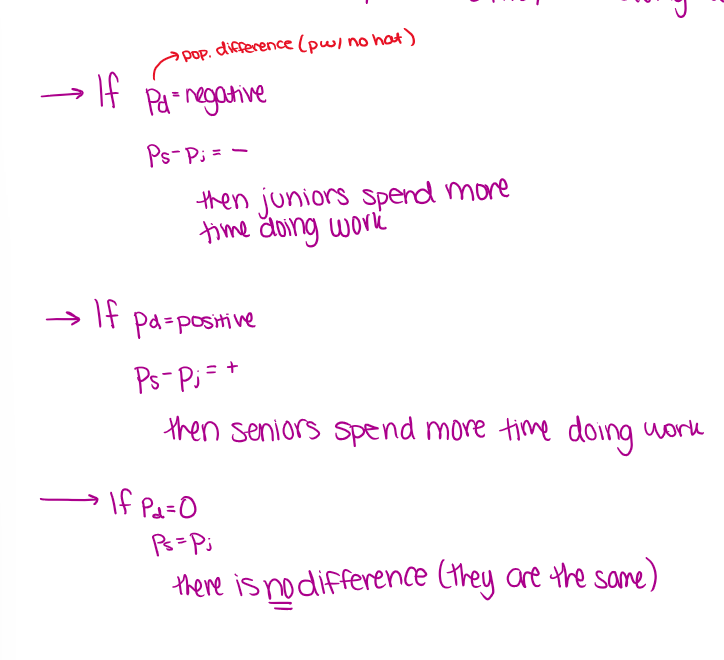 pop. difference (pw/ no hat)
→ If Pd = negative
Ps - Pj = -
then juniors spend more
time doing work
→ If Pd = positive
Ps - Pj = +
then seniors spend more time doing work
→ If Pd = 0
Ps = Pj
there is no difference (they are the same)